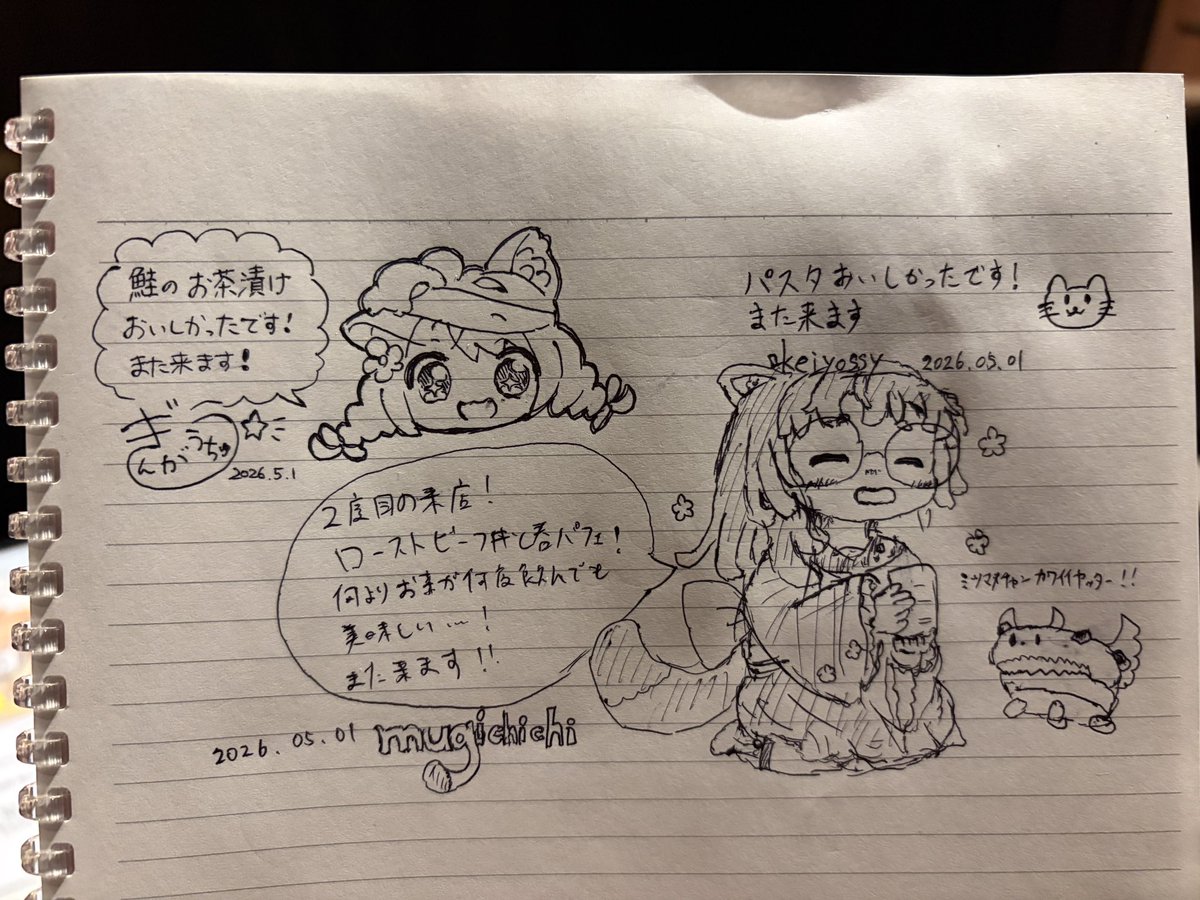 鮭のお茶漬け
おいしかったです!
また来ます!
ぎんがうちゅ
2026.5.1
パスタおいしかったです!
また来ます
keiyossy 2026.05.01
2度目の来店!
ローストビーフ丼と春パフェ!
何よりお茶が何度飲んでも
美味しい…!
また来ます!!
2026.05.01 mugichichi
ミツマメチャンカワイイヤッター!!